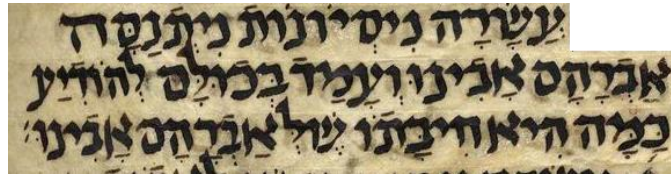 עֲשָׂרָה נִיסְיוֹנוֹת נִיתְנַסָּה
אַבְרָהָם אָבִינוּ וְעָמַד בְּכוּלָּם לְהוֹדִיעַ
כַמָּה הִיא חִיבָּתוֹ שֶׁלְאַבְרָהָם אָבִינוּ